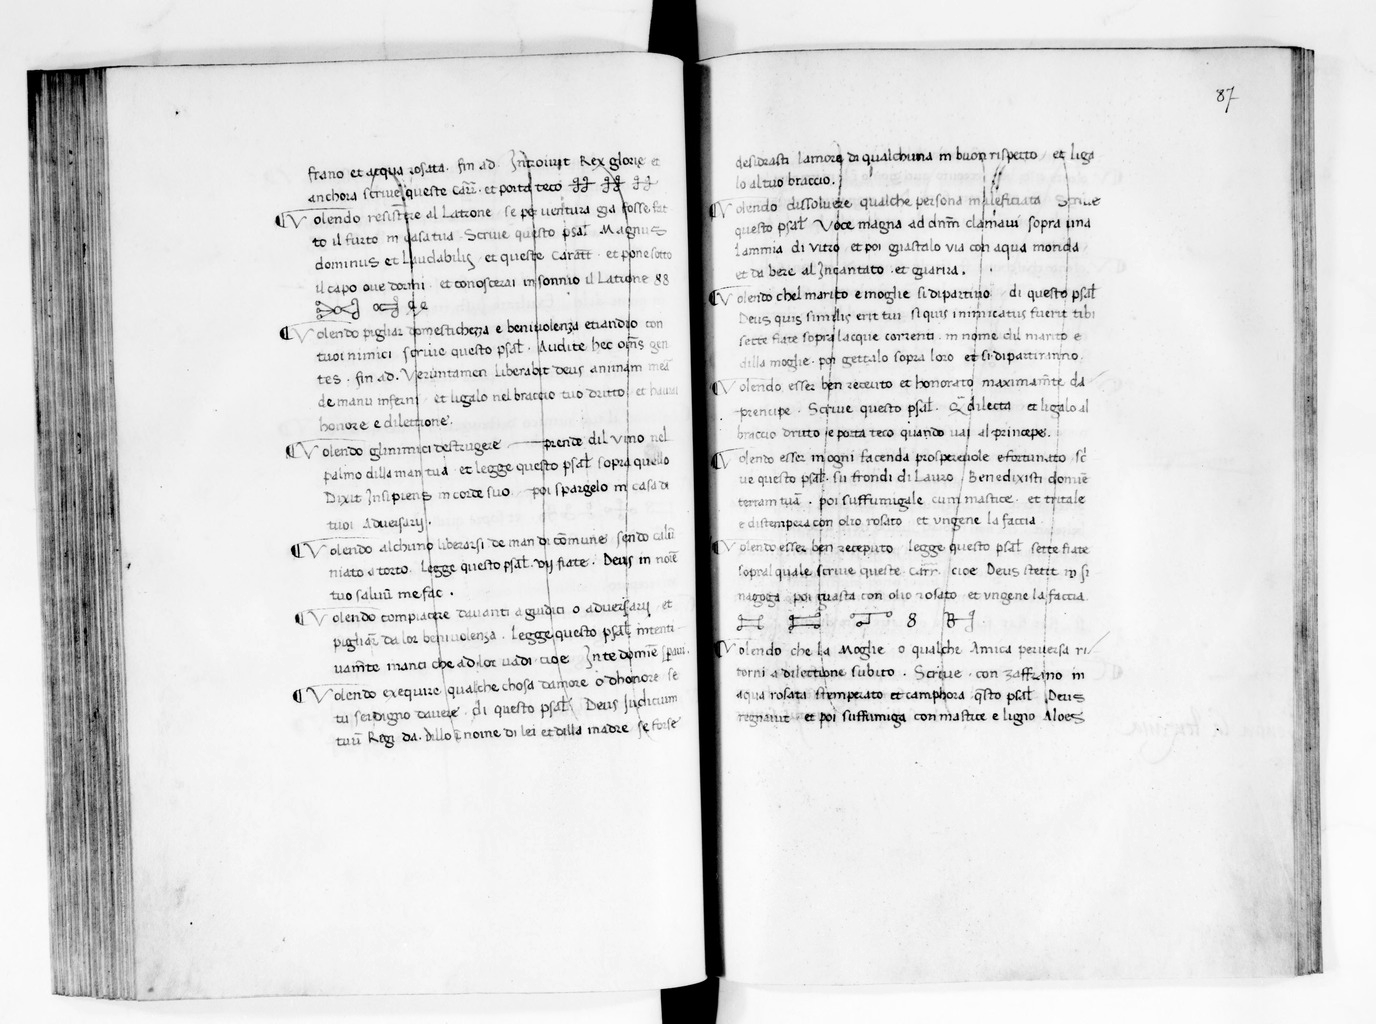 frano et acqua rosata. fin ad. Introivit Rex glorie et
anchora scrive queste Carr. et porta teco
Volendo resistere al Latrone se per ventura gia fosse fat
to il furto in casa tua. Scrive questo psal. Magnus
dominus et Laudabilis et queste Caratt. et pone sotto
il capo ove dormi et conoscerai in sonnio il Latrone 88
Volendo pigliar domestichezza e benivolenza etiandio con
tuoi nimici scrive questo psal. Audite hec oms gen
tes. fin ad. Veruntamen liberabit deus animam meā
de manu inferni et ligalo nel braccio tuo dritto et havrai
honore e dilettione.
Volendo glinimici destrugere prende dil vino nel
palmo dilla man tua et legge questo psal sopra quello
Dixit Insipiens in corde suo poi spargelo in casa di
tuoi Adversarij.
Volendo alchuno liberarsi de man di cōmune sendo calū
niato a torto. Legge questo psal. vij fiate. Deus in noīe
tuo salvū me fac.
Volendo compiacere davanti a giudici o adversarij et
pigliar da lor benivolenza. Legge questo psal intenti
vamēte inanci che ad lor vadi cioe In te domīe spavi.
Volendo exequire qualche chosa damore o dhonore se
tu sei digno davere. di questo psal Deus Judicium
tuū Regi da. dillo ī nome di lei et dilla madre se forse
87
desidrasti lamore di qualchuna in buon rispetto et liga
lo al tuo braccio.
Volendo dissolvere qualche persona maleficiata Scrive
questo psal Voce magna ad dnm clamavi sopra una
Lammia di vitro et poi guastalo via con aqua monda
et da bere al Incantato et guarira.
Volendo chel marito e moglie si dipartino di questo psal
Deus quis similis erit tui si quis inimicatus fuerit tibi
sette fiate sopra lacque correnti in nome dil marito e
dilla moglie. poi gettalo sopra loro et si dipartiranno.
Volendo esser ben recevto et honorato maximamte da
prencipe. Scrive questo psal. Q dilecta et ligalo al
braccio dritto e porta teco quando vai al principe.
Volendo esser in ogni facenda prosperevole e fortunato sc
ve questo psal. sū frondi di Lauro. Benedixisti domīe
terram tuā. poi suffumigale cum mastice et tritale
e distempera con olio rosato et vngene la faccia
Volendo esser ben receputo legge questo psal sette fiate
sopral quale scrive queste carr. cioe Deus stetit in si
nagoga poi guasta con olio rosato et vngene la faccia
8
Volendo che la Moglie o qualche Amica perversa ri
torni a dilettione subito. Scrive con zaffrano in
aqua rosata stemperato et camphora qsto psal Deus
regnavit et poi suffumiga con mastice e ligno Aloes